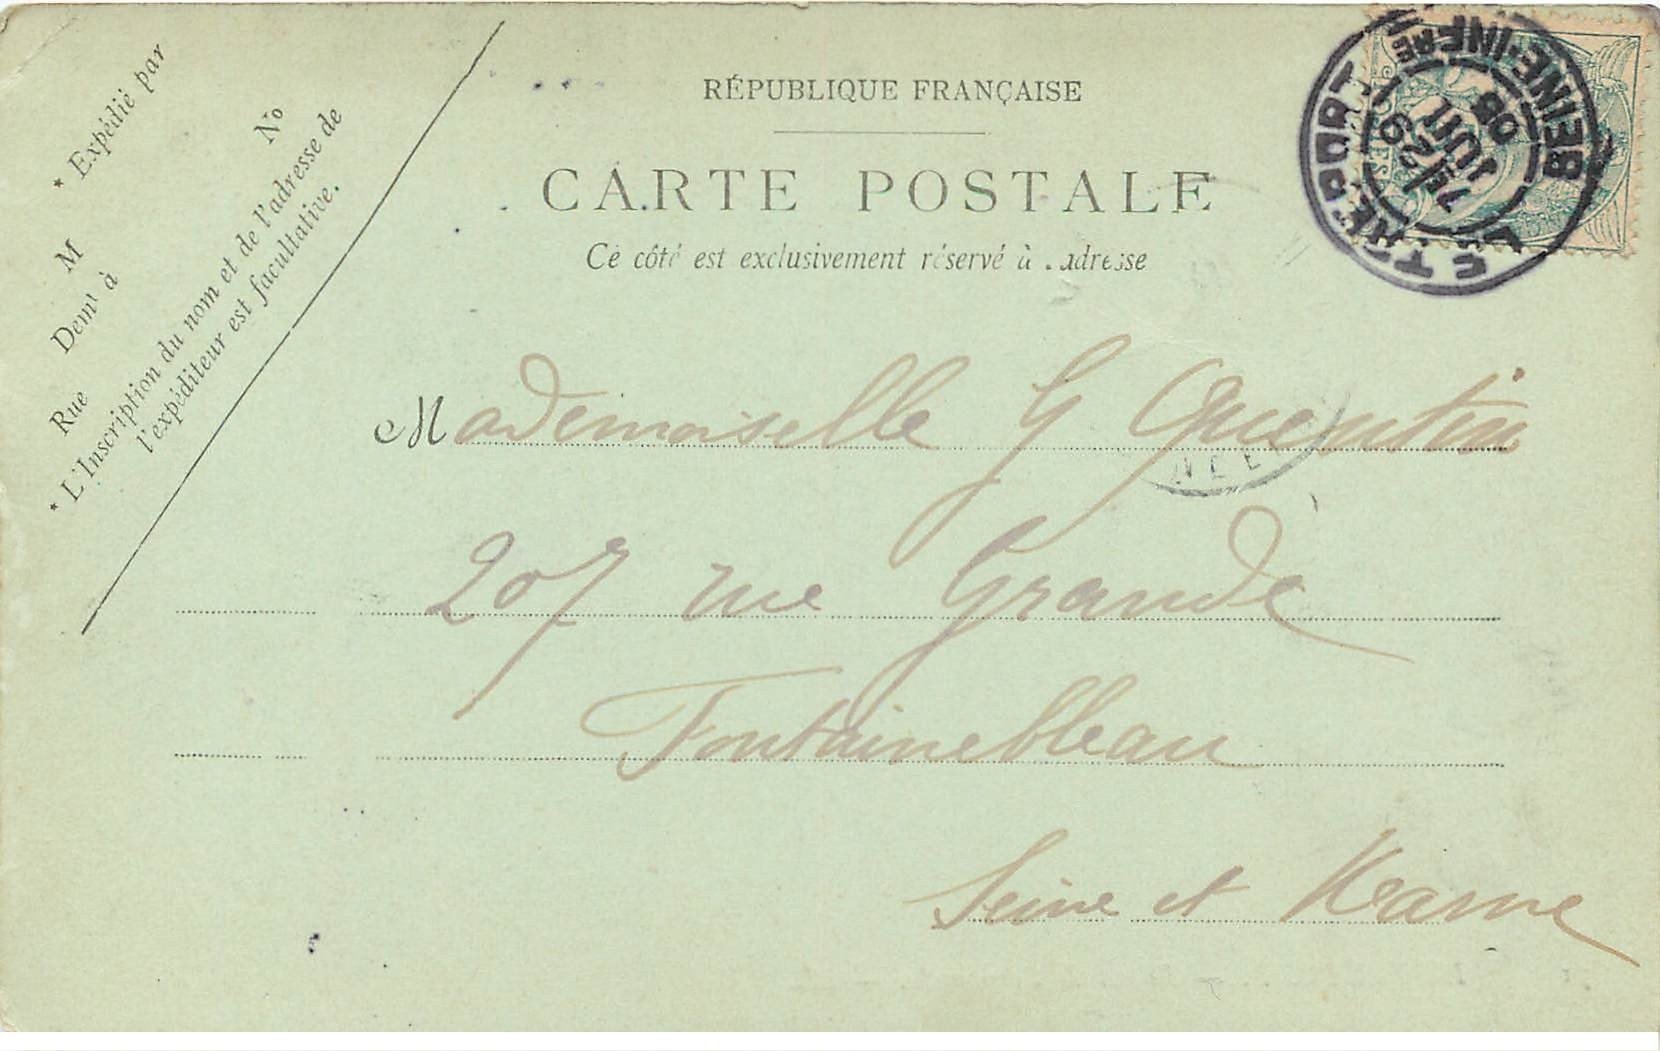 * Expédié par
No
M
Demt à
Rue
* L'Inscription du nom et de l'adresse de
l'expéditeur est facultative.
RÉPUBLIQUE FRANÇAISE
CARTE POSTALE
Ce côté est exclusivement réservé à adresse
Mademoiselle G Quentin
207 rue Grande
Fontainebleau
Seine et Marne
LE TRÉPORT
SEINE-INFRE
22
JUIL
05